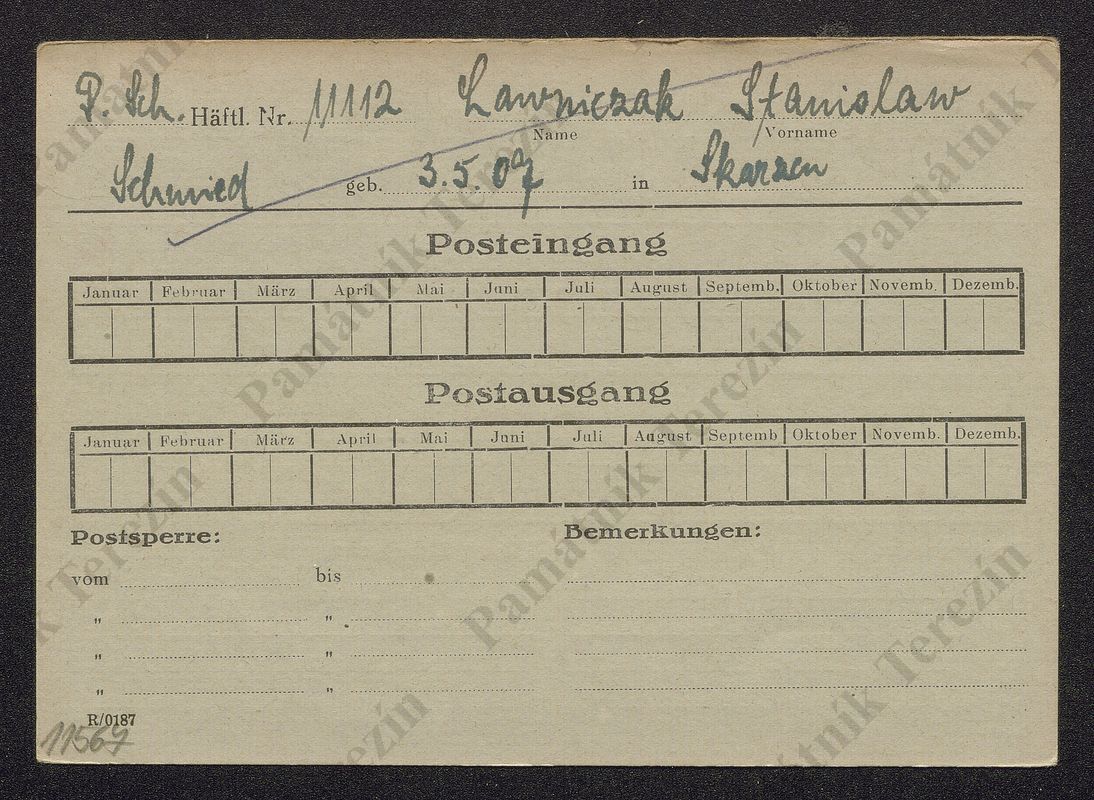 P. Sch. Häftl. Nr. 11112 Lawniczak Stanislaw
Name Vorname
Schmied geb. 3.5.07 in Skarzen
Posteingang
Januar Februar März April Mai Juni Juli August Septemb. Oktober Novemb. Dezemb.
Postausgang
Januar Februar März April Mai Juni Juli August Septemb Oktober Novemb. Dezemb.
Postsperre: Bemerkungen:
vom bis
" "
" "
" "
R/0187
11567
Památník Terezín